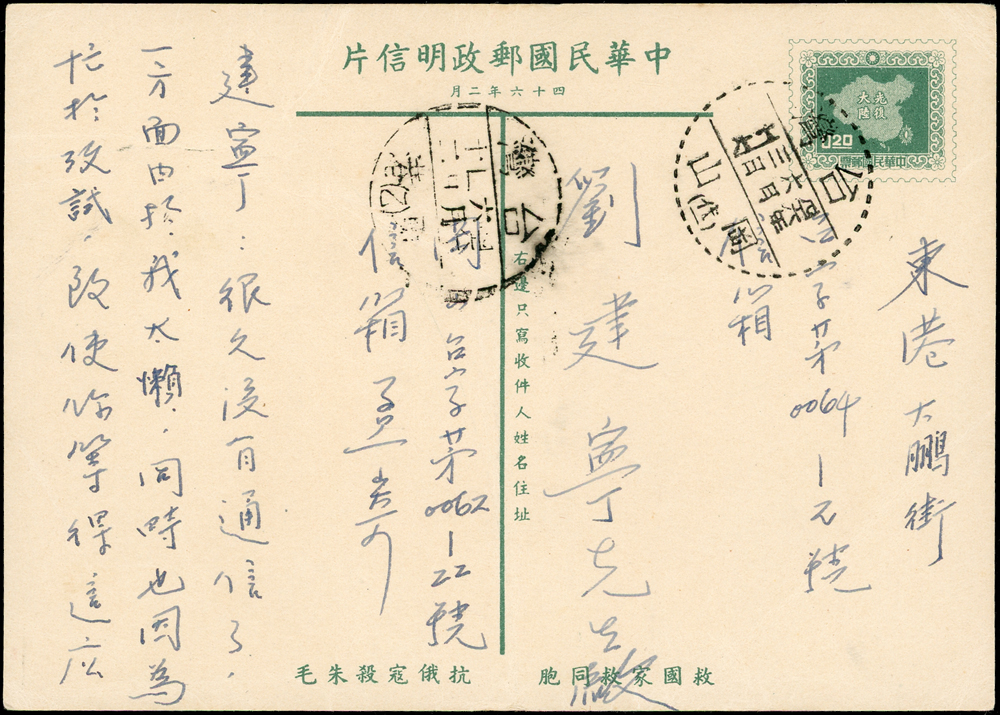 中華民國郵政明信片
四十六年二月
光復
大陸
中華民國郵票
台灣
岡山
東港大鵬街
台字第0064-1元號
信箱
劉建寧先生啟
右邊只寫收件人姓名住址
台灣
台字第0062-22號
信箱孟
建寧:很久沒有通信了。
一方面由於我太懶,同時也因為
忙於攷試,致使你等得這麼
救國家救同胞
抗俄寇殺朱毛